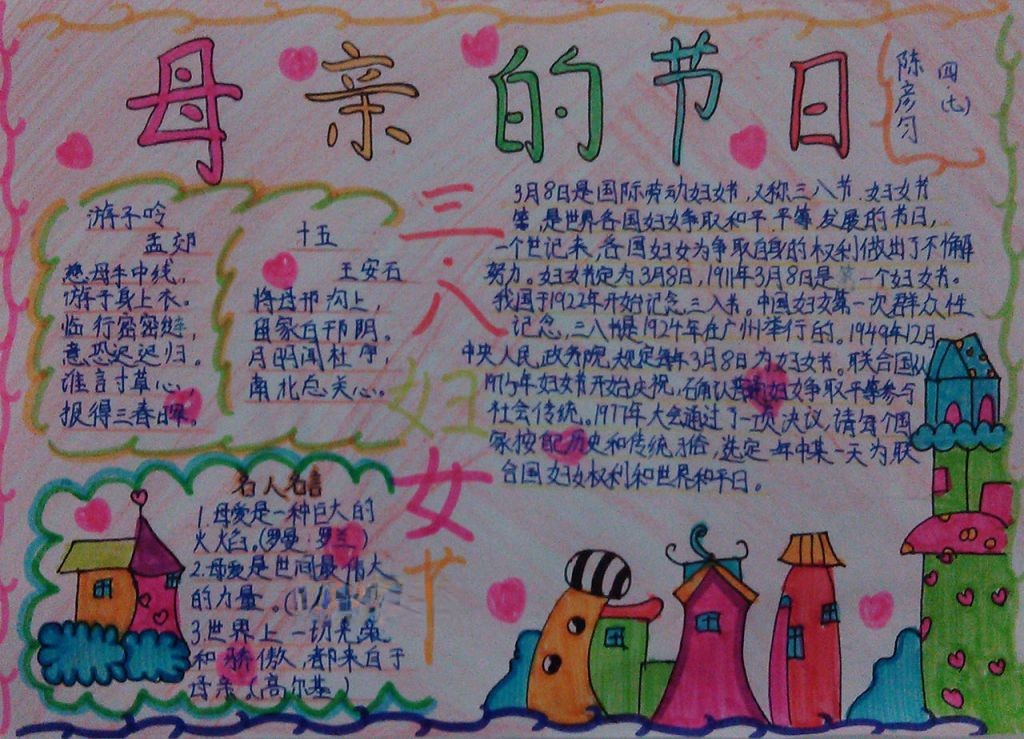 母亲的节日
四·(七)
陈彦匀
游子吟
孟郊
慈母手中线,
游子身上衣。
临行密密缝,
意恐迟迟归。
谁言寸草心,
报得三春晖。
十五
王安石
将母邗沟上,
留家白邗阴。
月明闻杜宇,
南北总关心。
三·八
妇
女
节
3月8日是国际劳动妇女节,又称三八节.妇女节
等,是世界各国妇女争取和平.平等.发展的节日,
一个世记来,各国妇女为争取自身的权利做出了不懈
努力。妇女节定为3月8日,1911年3月8日是第一个妇女节。
我国于1922年开始记念三八节。中国妇女第一次群众性
记念,三八节是1924年在广州举行的。1949年12月,
中央人民政务院规定每年3月8日为妇女节。联合国从
1975年妇女节开始庆祝,确认普通妇女争取平等参与
社会传统。1977年大会通过了一项决议,请每个国
家按照历史和传统习俗,选定一年中某一天为联
合国妇女权利和世界和平日。
名人名言
1.母爱是一种巨大的
火焰。(罗曼·罗兰)
2.母爱是世间最伟大
的力量。(
3.世界上一切光荣
和骄傲,都来自于
母亲。(高尔基)